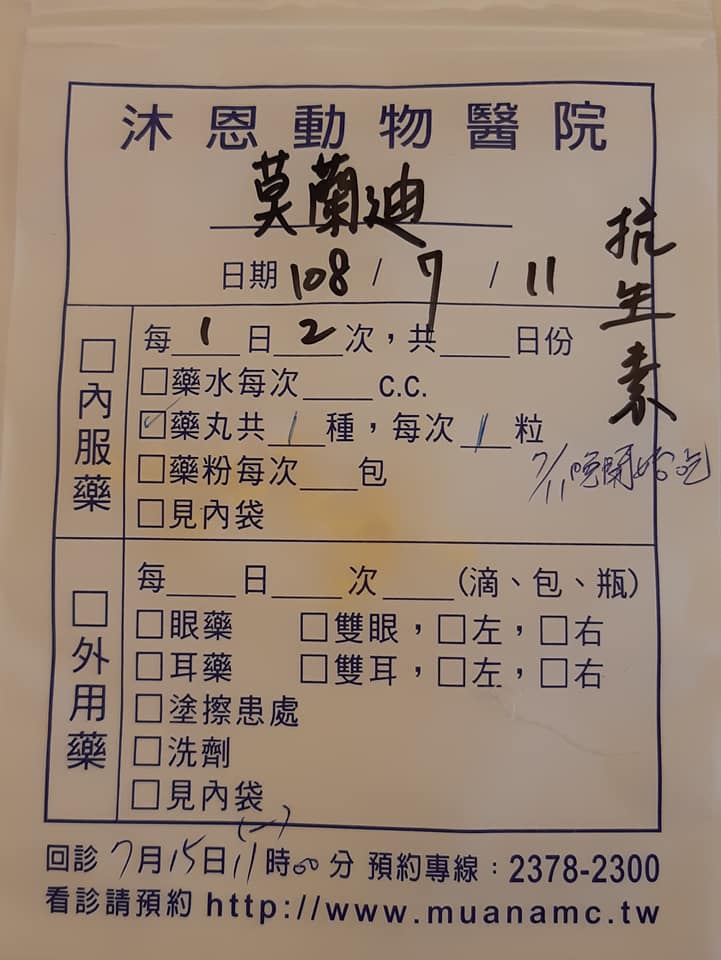 沐恩動物醫院
莫蘭迪
日期 108 / 7 / 11
抗生素
□內服藥
每 1 日 2 次，共____日份
□藥水每次____c.c.
☑藥丸共 1 種，每次 1 粒
7/11 晚開始吃
□藥粉每次____包
□見內袋
□外用藥
每____日____次____(滴、包、瓶)
□眼藥 □雙眼，□左，□右
□耳藥 □雙耳，□左，□右
□塗擦患處
□洗劑
□見內袋
(一)
回診 7月15日11時00分 預約專線：2378-2300
看診請預約 http://www.muanamc.tw